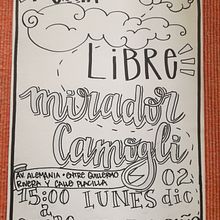 LiBRE
mirador
Camogli
AV. ALEMANIA - ENTRE GUILLERMO
RIVERA Y CALLE PLACILLA
15:00 LUNES 02
a dic